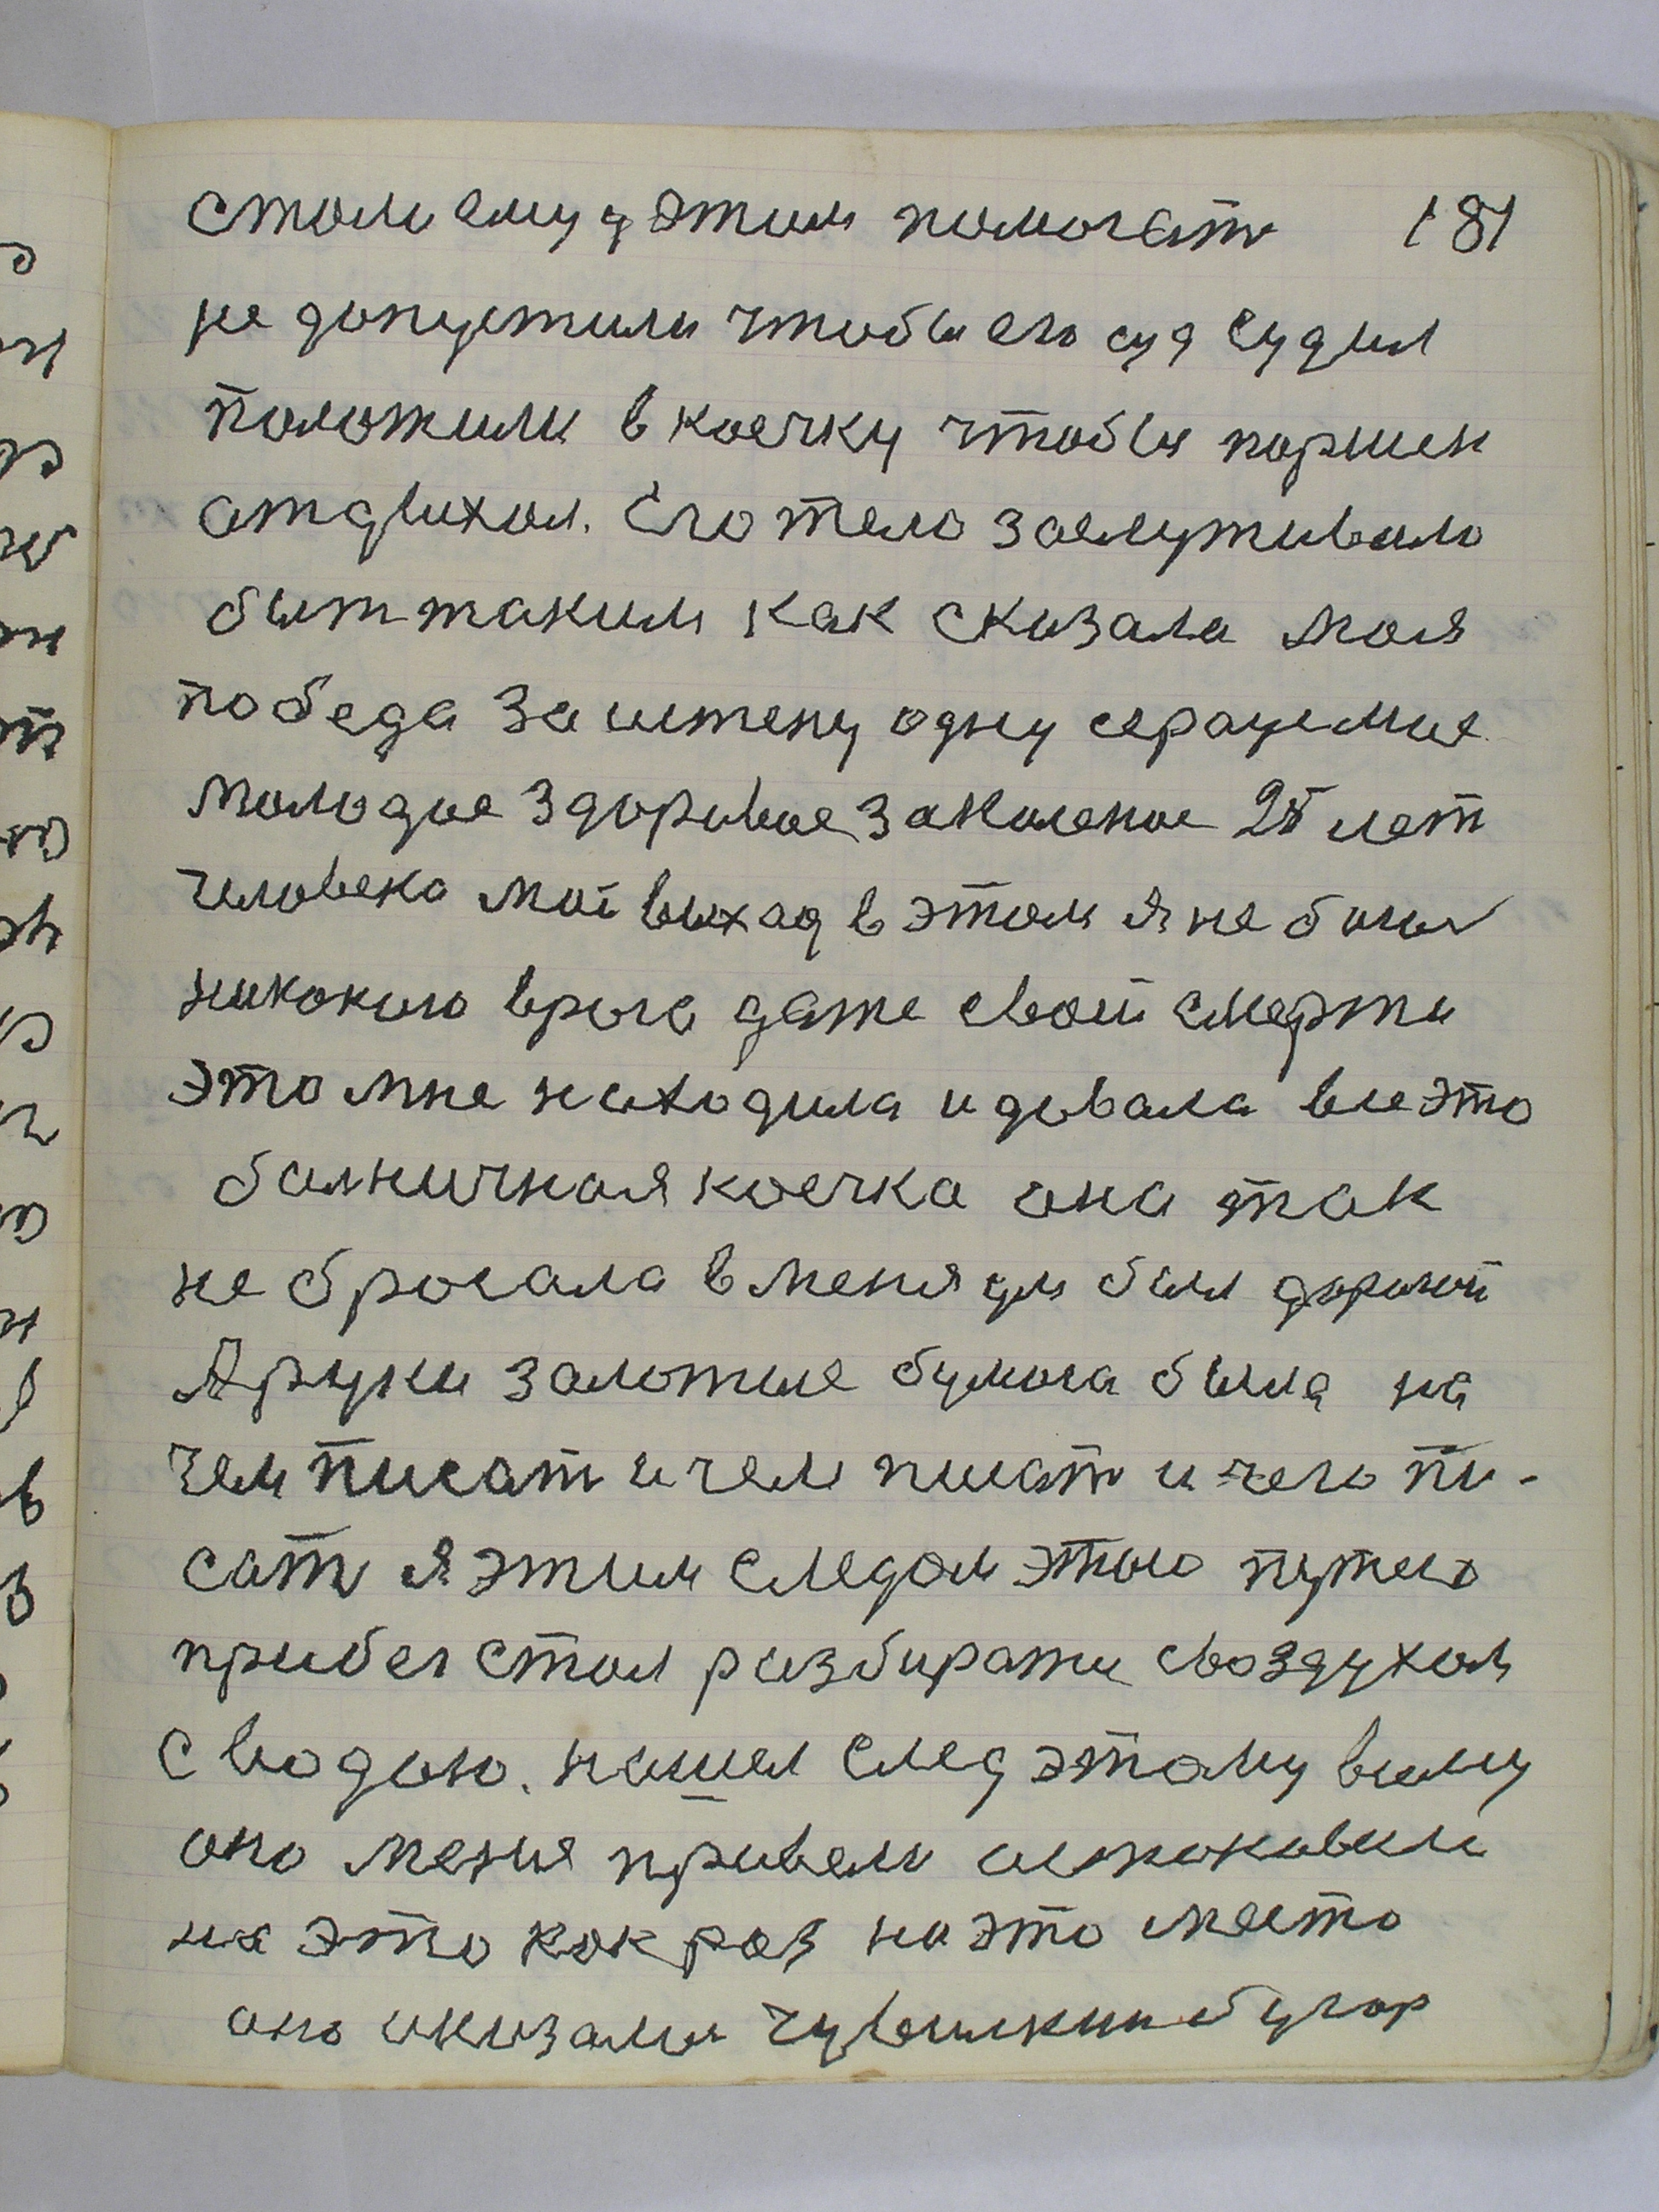 стали ему у этим помогать 181
не допустили чтобы его суд судил
положили в коечку чтобы поршен
отдыхал. Его тело заслуживало
быт таким как сказала моя
победа за истену одну серацемие
молодое здоровое закаленое 25 лет
человека мой выход в этом я не боюсь
никокого врага даже свой смерти
это мне находила и довала все это
болничная коечка она так
не бросала в меня ум был дорогой
А руки залотые бумога была на
чем писат и чем писат и чего пи-
сат я этим следом этою путею
прибег стал разбирати своздухом
с водою. нашел след этому всему
оно меня привели астоновили
на это как раз на это место
оно оказалы чувилкин бугор